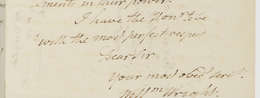 in your power.
I have the Honr. to be
with the most perfect respect
Dear Sir
your most obedt. servt.
Wright